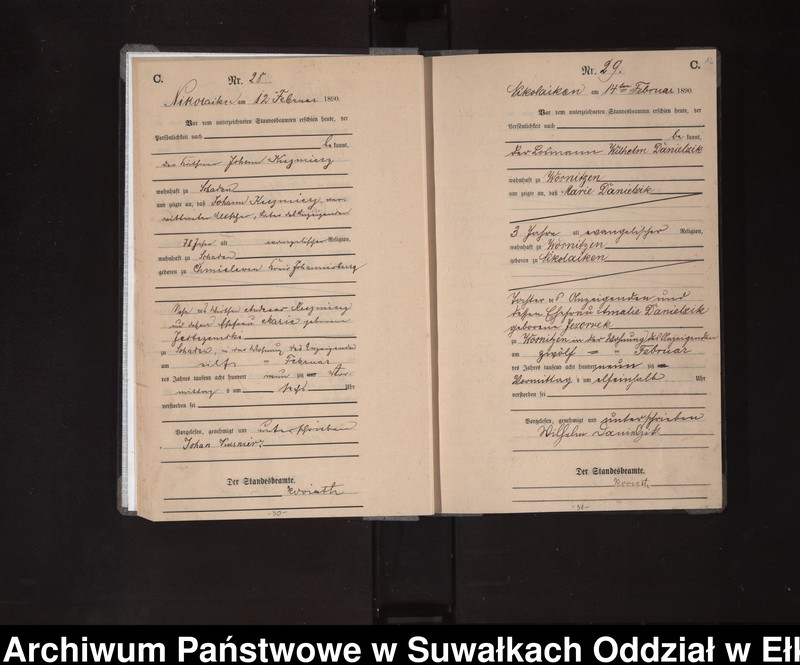 C.
Nr. 28
Nikolaiken am 12 Februar 1890.
Vor dem unterzeichneten Standesbeamten erschien heute, der
Persönlichkeit nach
bekannt,
Johann
wohnhaft zu Schaden
und zeigte an, daß Johann
78 Jahre alt evangelischer Religion,
wohnhaft zu Schaden
geboren zu Chmielewen Kreis Johannisburg
Sohn des Wirthen Andreas
und dessen Ehefrau Marie geborene
zu Schaden, in der Wohnung des Anzeigenden
am eilf Februar
des Jahres tausend acht hundert neun zig Vor-
mittag s um sechs Uhr
verstorben sei
Vorgelesen, genehmigt und unterschrieben
Johan
Der Standesbeamte.
-30-
Nr. 29.
C.
Nikolaiken am 14ten Februar 1890.
Vor dem unterzeichneten Standesbeamten erschien heute, der
Persönlichkeit nach
bekannt,
der Losmann Wilhelm Danielzik
wohnhaft zu Wörnitzen
und zeigte an, daß Marie Danielzik
3 Jahre alt evangelischer Religion,
wohnhaft zu Wörnitzen
geboren zu Nikolaiken
Tochter des Anzeigenden und
dessen Ehefrau Amalie Danielzik
geborene Jeromek
zu Wörnitzen in der Wohnung des Anzeigenden
am zwölf Februar
des Jahres tausend acht hundert neun zig
Vormittag s um elfeinhalb Uhr
verstorben sei
Vorgelesen, genehmigt und unterschrieben
Wilhelm Danielzik
Der Standesbeamte.
-31-
Archiwum Państwowe w Suwałkach Oddział w Ełk